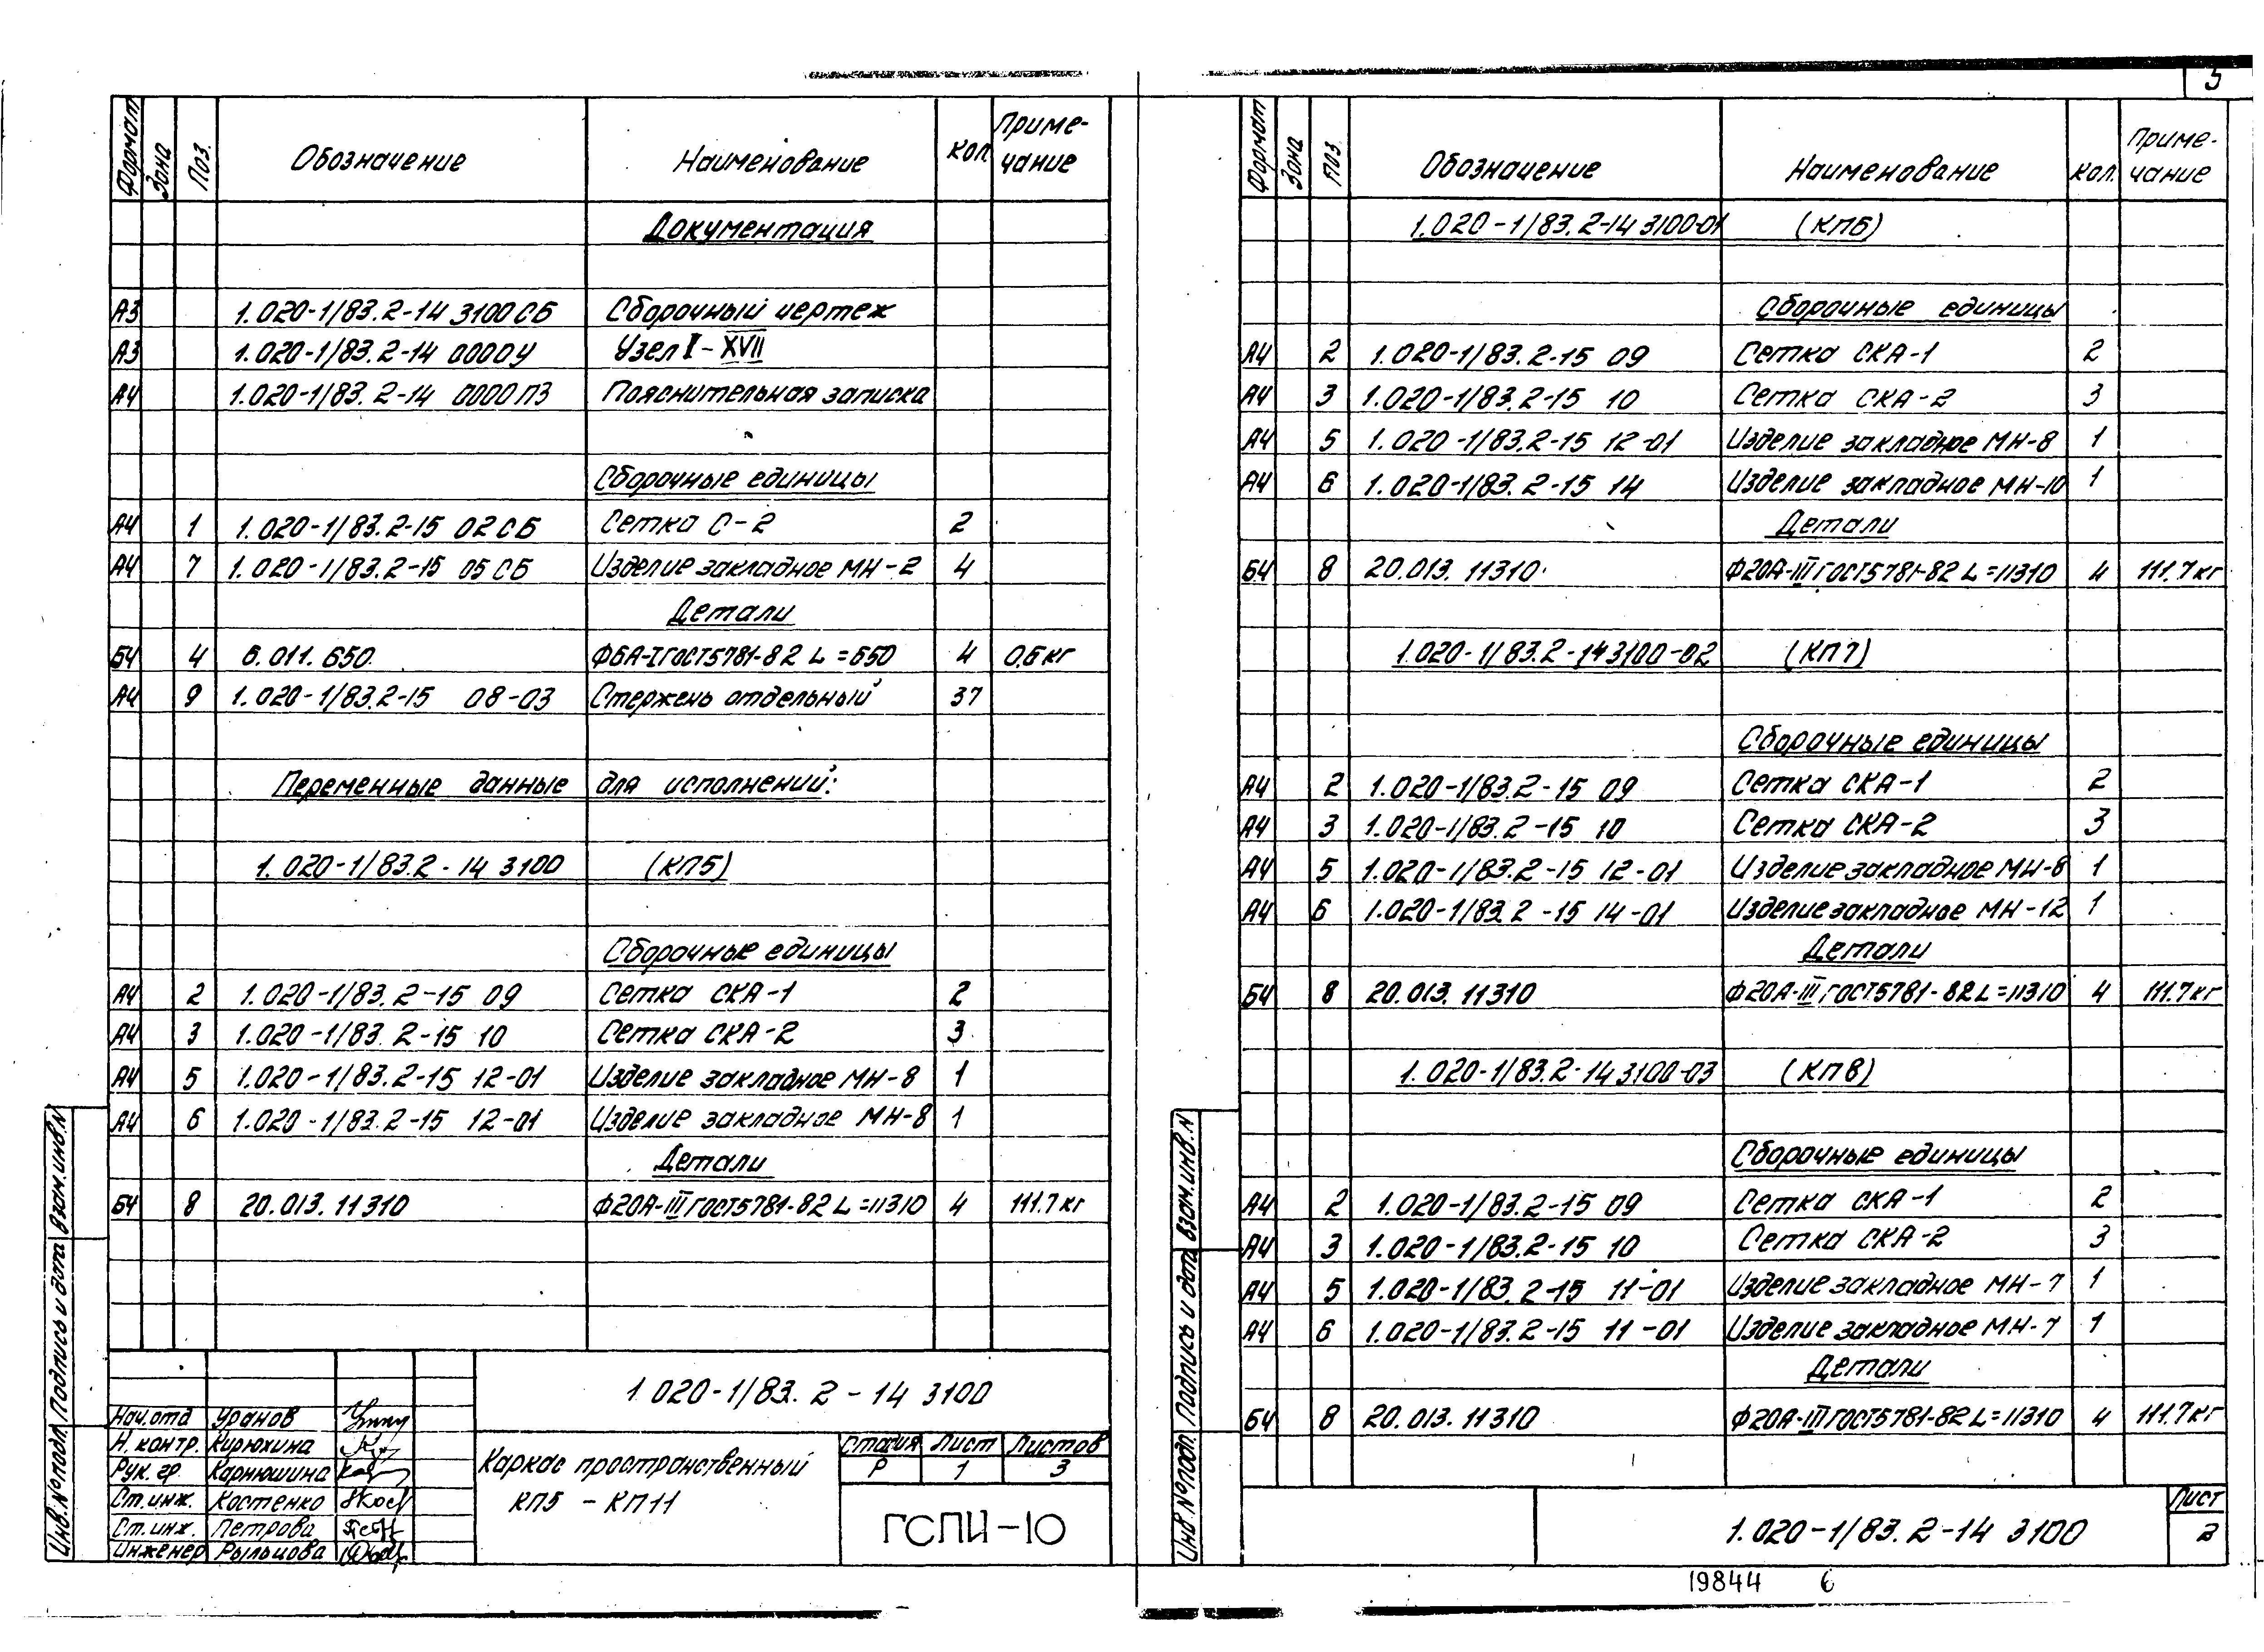 Формат Зона Поз. Обозначение Наименование Кол. Приме-
чание
Документация
А3 1.020-1/83.2-14 3100СБ Сборочный чертеж
А3 1.020-1/83.2-14 0000У Узел I-XVII
А4 1.020-1/83.2-14 0000ПЗ Пояснительная записка
Сборочные единицы
А4 1 1.020-1/83.2-15 02СБ Сетка С-2 2
А4 7 1.020-1/83.2-15 05СБ Изделие закладное МН-2 4
Детали
БЧ 4 6.011.650 Ф6А-I ГОСТ5781-82 L=650 4 0,6 кг
А4 9 1.020-1/83.2-15 08-03 Стержень отдельный 37
Переменные данные для исполнений:
1.020-1/83.2-14 3100 (КП5)
Сборочные единицы
А4 2 1.020-1/83.2-15 09 Сетка СКА-1 2
А4 3 1.020-1/83.2-15 10 Сетка СКА-2 3
А4 5 1.020-1/83.2-15 12-01 Изделие закладное МН-8 1
А4 6 1.020-1/83.2-15 12-01 Изделие закладное МН-8 1
Детали
БЧ 8 20.013.11310 Ф20А-III ГОСТ5781-82 L=11310 4 111.7кг
1.020-1/83.2-14 3100
Нач.отд Уранов
Н.контр. Кирюхина
Рук.гр. Карнюшина
Ст.инж. Костенко
Ст.инж. Петрова
Инженер Рыльцова
Каркас пространственный
КП5 - КП11
Стадия Лист Листов
Р 1 3
ГСПИ-10
Инв.№подл. Подпись и дата Взам.инв.N
5
Формат Зона Поз. Обозначение Наименование Кол. Приме-
чание
1.020-1/83.2-14 3100-01 (КП6)
Сборочные единицы
А4 2 1.020-1/83.2-15 09 Сетка СКА-1 2
А4 3 1.020-1/83.2-15 10 Сетка СКА-2 3
А4 5 1.020-1/83.2-15 12-01 Изделие закладное МН-8 1
А4 6 1.020-1/83.2-15 14 Изделие закладное МН-10 1
Детали
БЧ 8 20.013.11310 Ф20А-III ГОСТ5781-82 L=11310 4 111.7кг
1.020-1/83.2-14 3100-02 (КП7)
Сборочные единицы
А4 2 1.020-1/83.2-15 09 Сетка СКА-1 2
А4 3 1.020-1/83.2-15 10 Сетка СКА-2 3
А4 5 1.020-1/83.2-15 12-01 Изделие закладное МН-8 1
А4 6 1.020-1/83.2-15 14-01 Изделие закладное МН-12 1
Детали
БЧ 8 20.013.11310 Ф20А-III ГОСТ5781-82 L=11310 4 111.7кг
1.020-1/83.2-14 3100-03 (КП8)
Сборочные единицы
А4 2 1.020-1/83.2-15 09 Сетка СКА-1 2
А4 3 1.020-1/83.2-15 10 Сетка СКА-2 3
А4 5 1.020-1/83.2-15 11-01 Изделие закладное МН-7 1
А4 6 1.020-1/83.2-15 11-01 Изделие закладное МН-7 1
Детали
БЧ 8 20.013.11310 Ф20А-III ГОСТ5781-82 L=11310 4 111.7кг
1.020-1/83.2-14 3100
Лист
2
Инв.№подл. Подпись и дата Взам.инв.N
19844 6